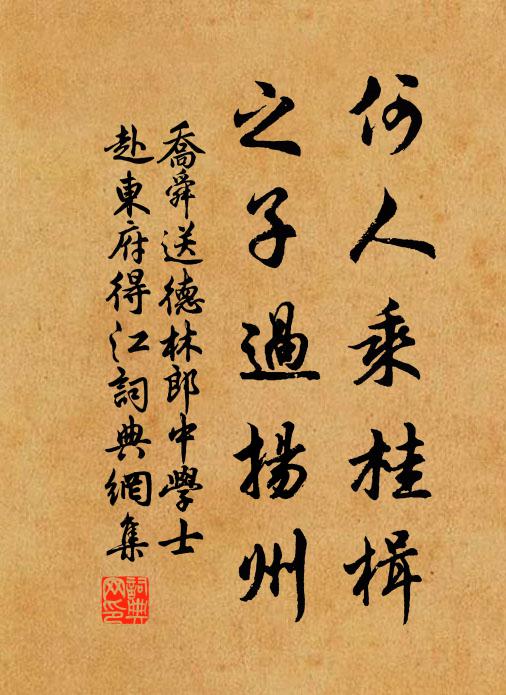 何人乘桂楫
之子過揚州
喬舜送德林郎中學士
赴東府得江詞典網集
詞典網印